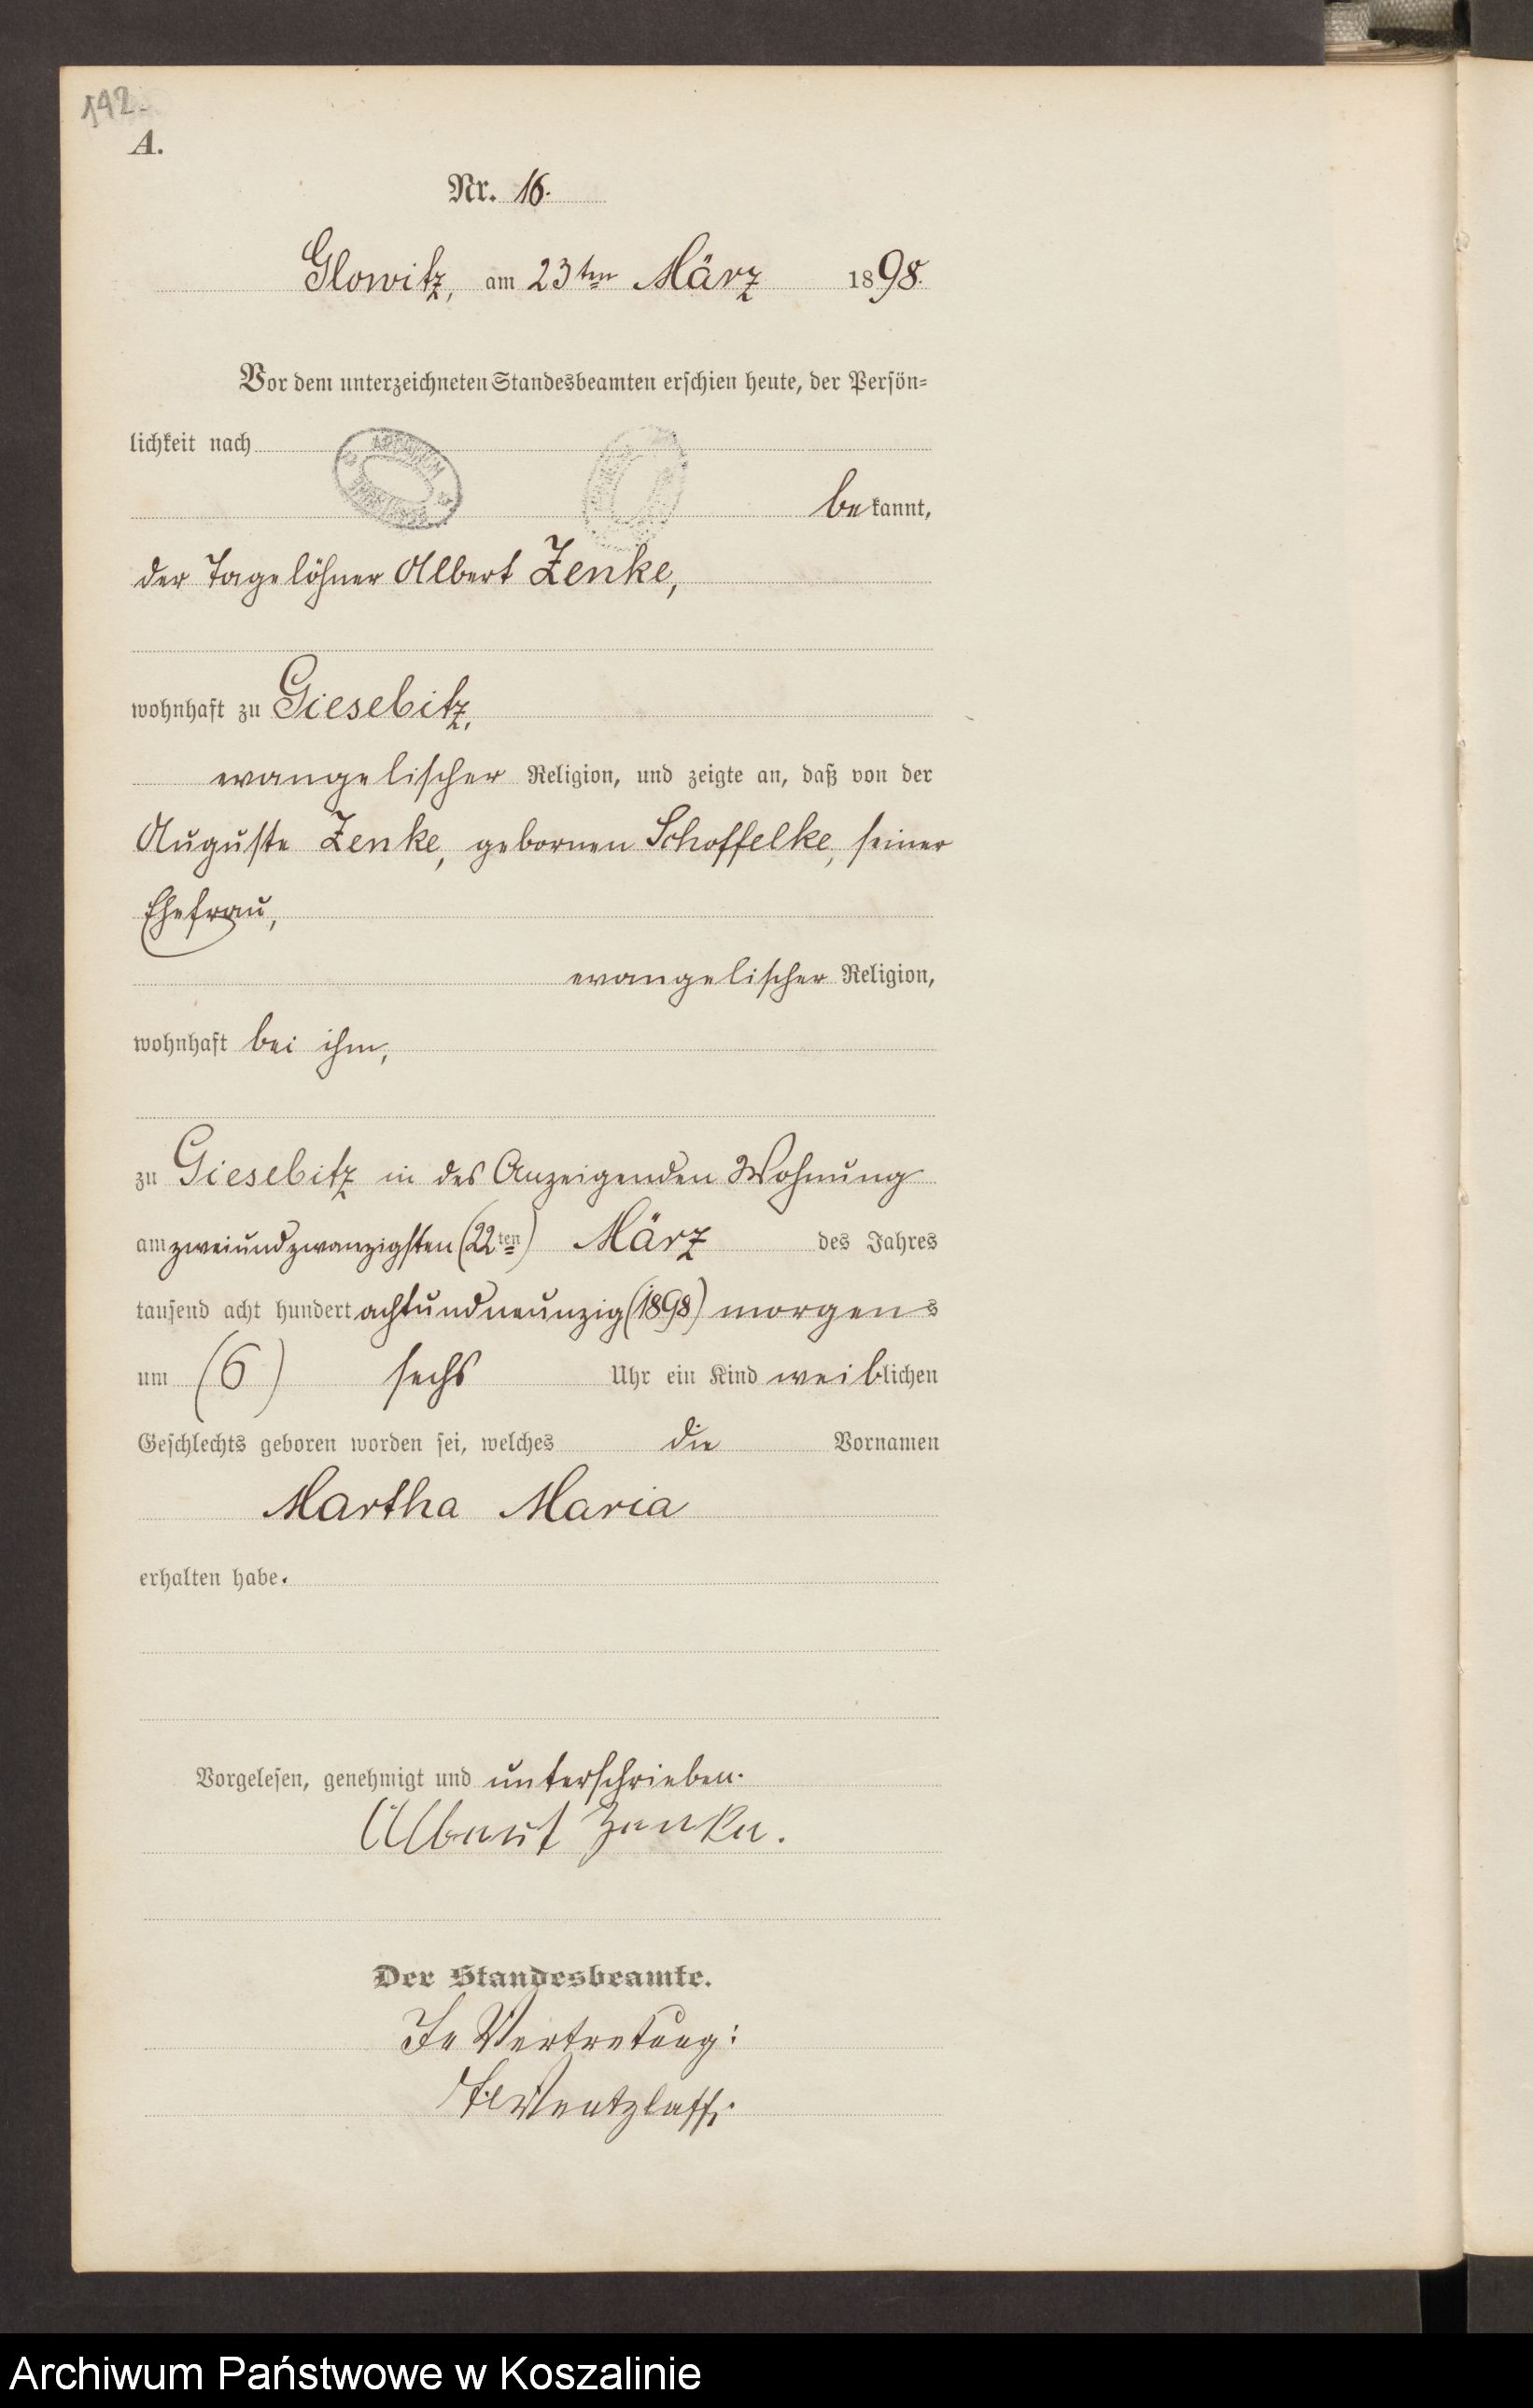 142.
A.
Nr. 16.
Glowitz, am 23ten März 1898.
Vor dem unterzeichneten Standesbeamten erschien heute, der Persön=
lichkeit nach
bekannt,
der Tagelöhner Albert Zenke,
wohnhaft zu Giesebitz,
evangelischer Religion, und zeigte an, daß von der
Auguste Zenke, gebornen Schoffelke, seiner
Ehefrau,
evangelischer Religion,
wohnhaft bei ihm,
zu Giesebitz in des Anzeigenden Wohnung
am zweiundzwanzigsten (22ten) März des Jahres
tausend acht hundert achtundneunzig (1898) morgens
um (6) sechs Uhr ein Kind weiblichen
Geschlechts geboren worden sei, welches die Vornamen
Martha Maria
erhalten habe.
Vorgelesen, genehmigt und unterschrieben.
Albert Zenke.
Der Standesbeamte.
In Vertretung:
Wentzlaff.
Archiwum Państwowe w Koszalinie